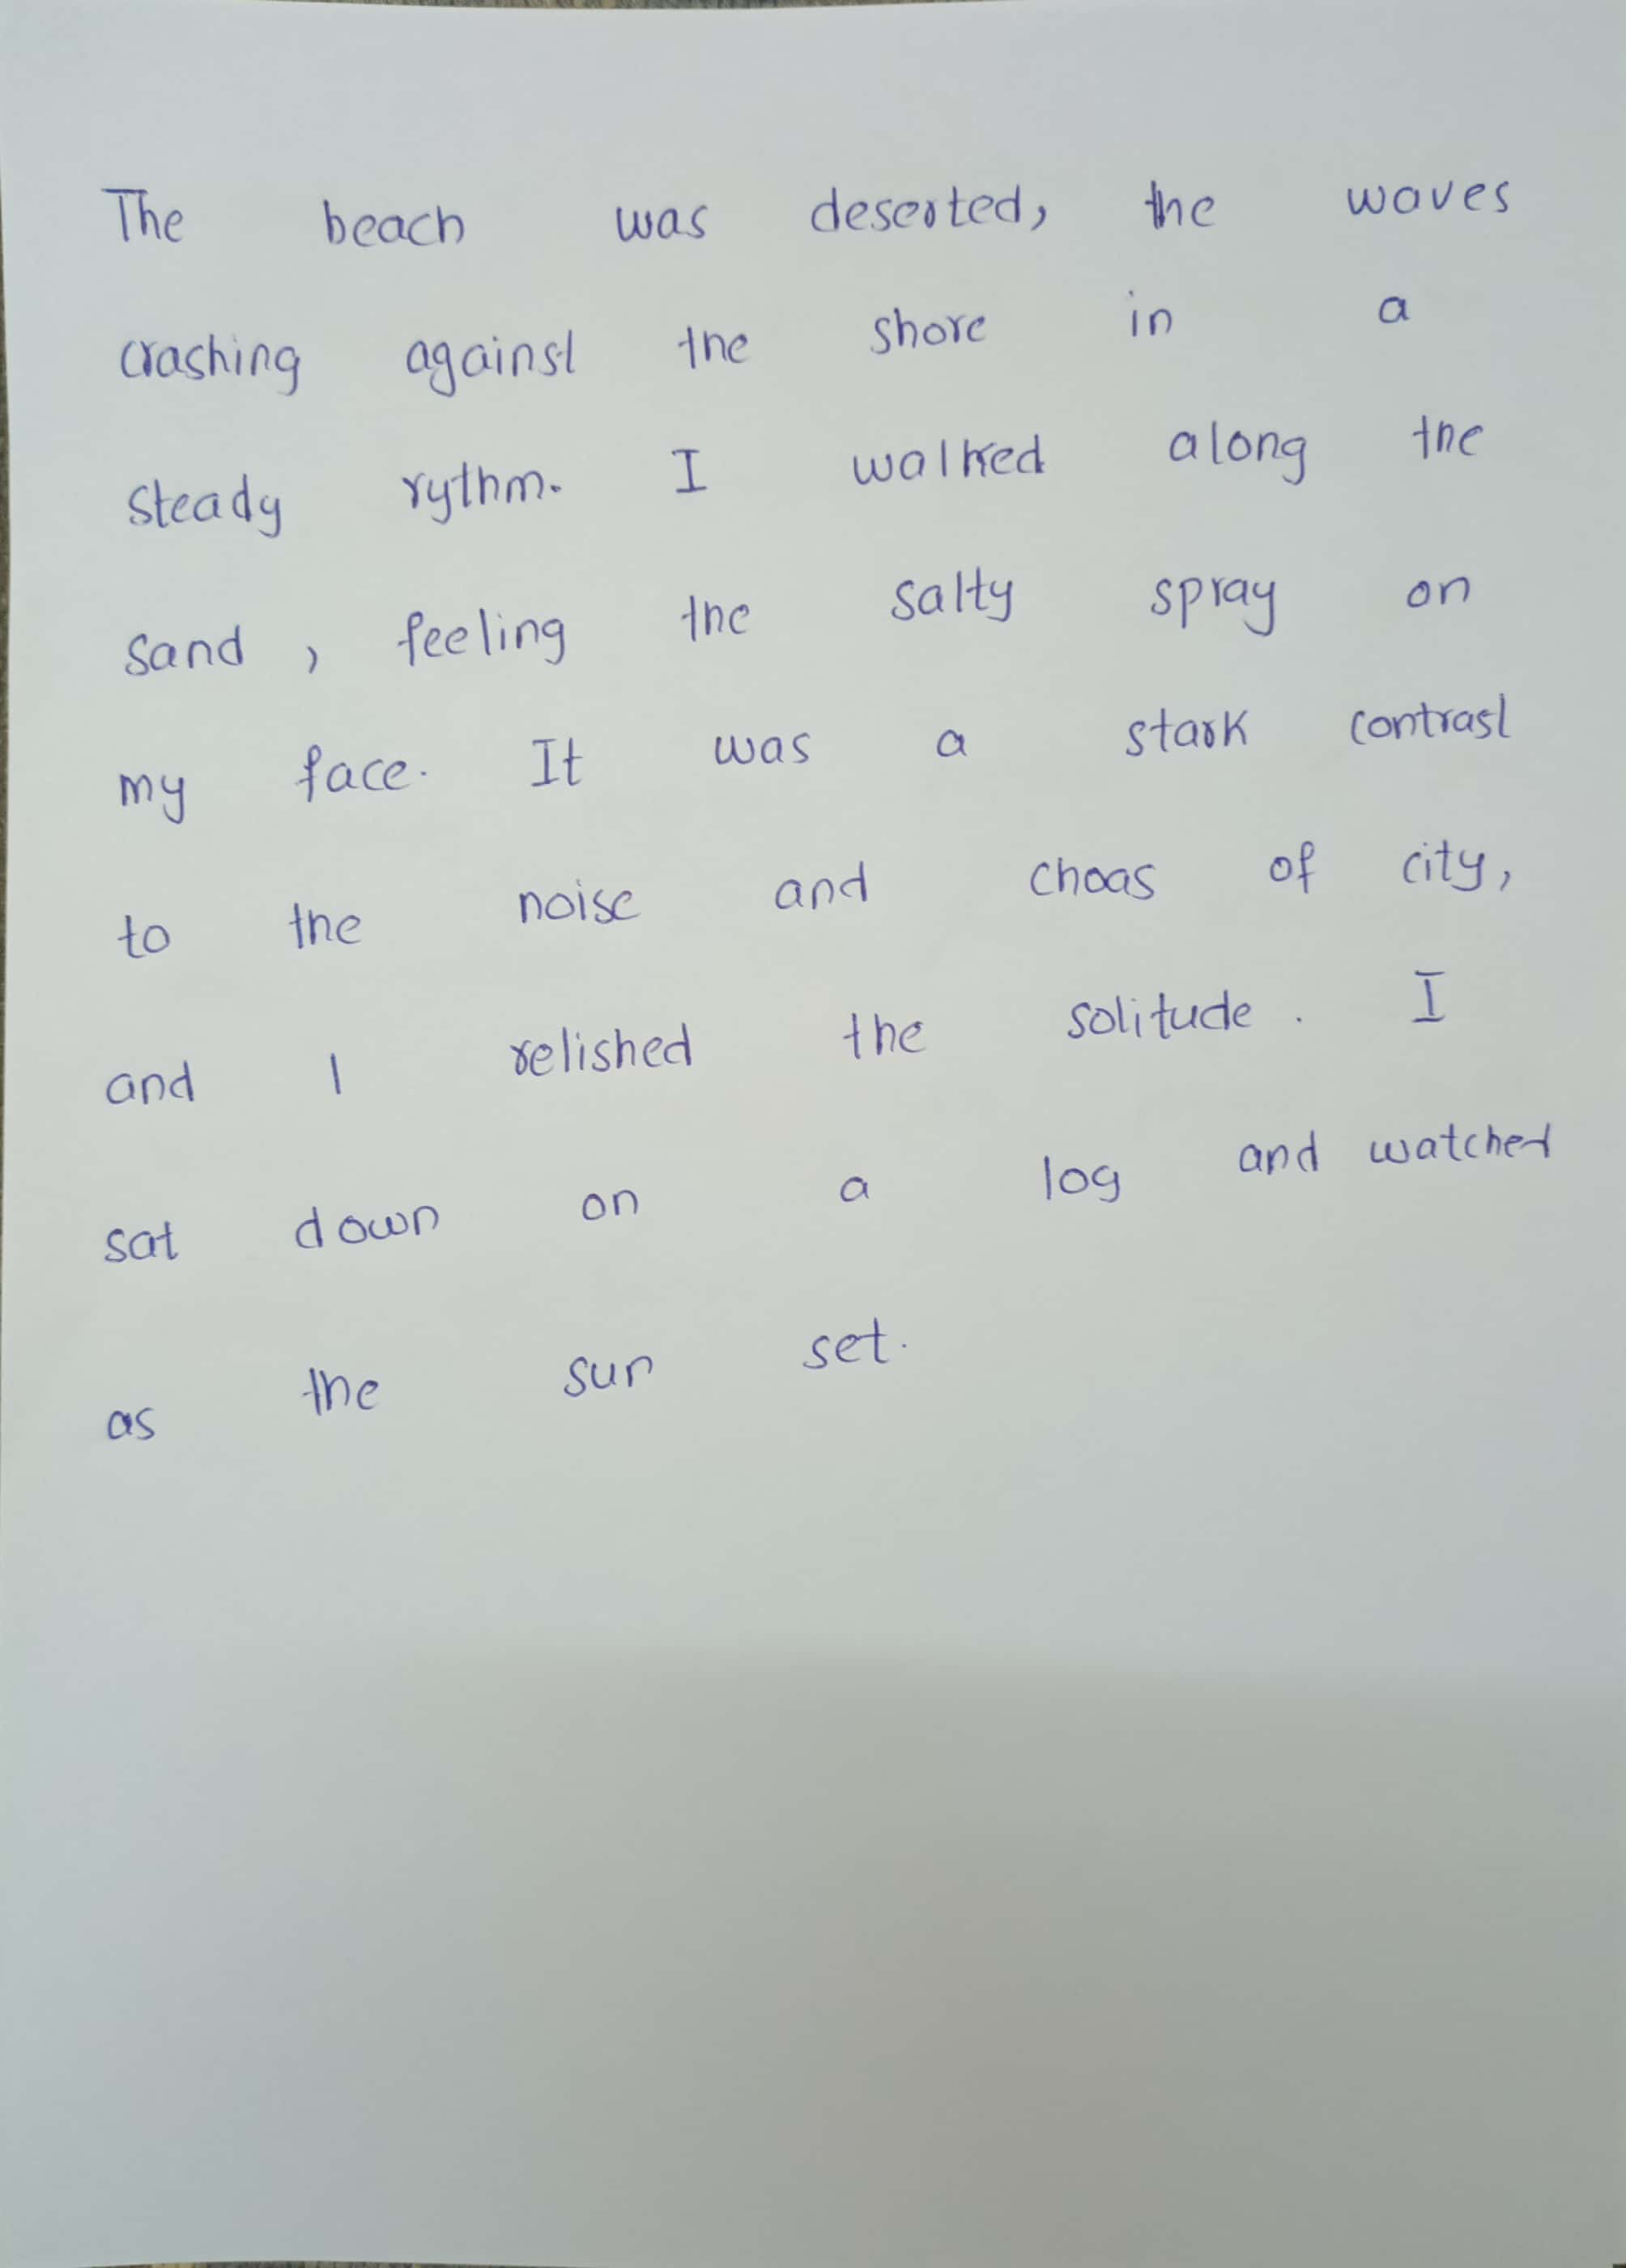 The beach was deserted, the waves
crashing against the shore in a
steady rythm. I walked along the
sand , feeling the salty spray on
my face. It was a stark contrast
to the noise and choas of city,
and I relished the solitude . I
sat down on a log and watched
as the sun set.